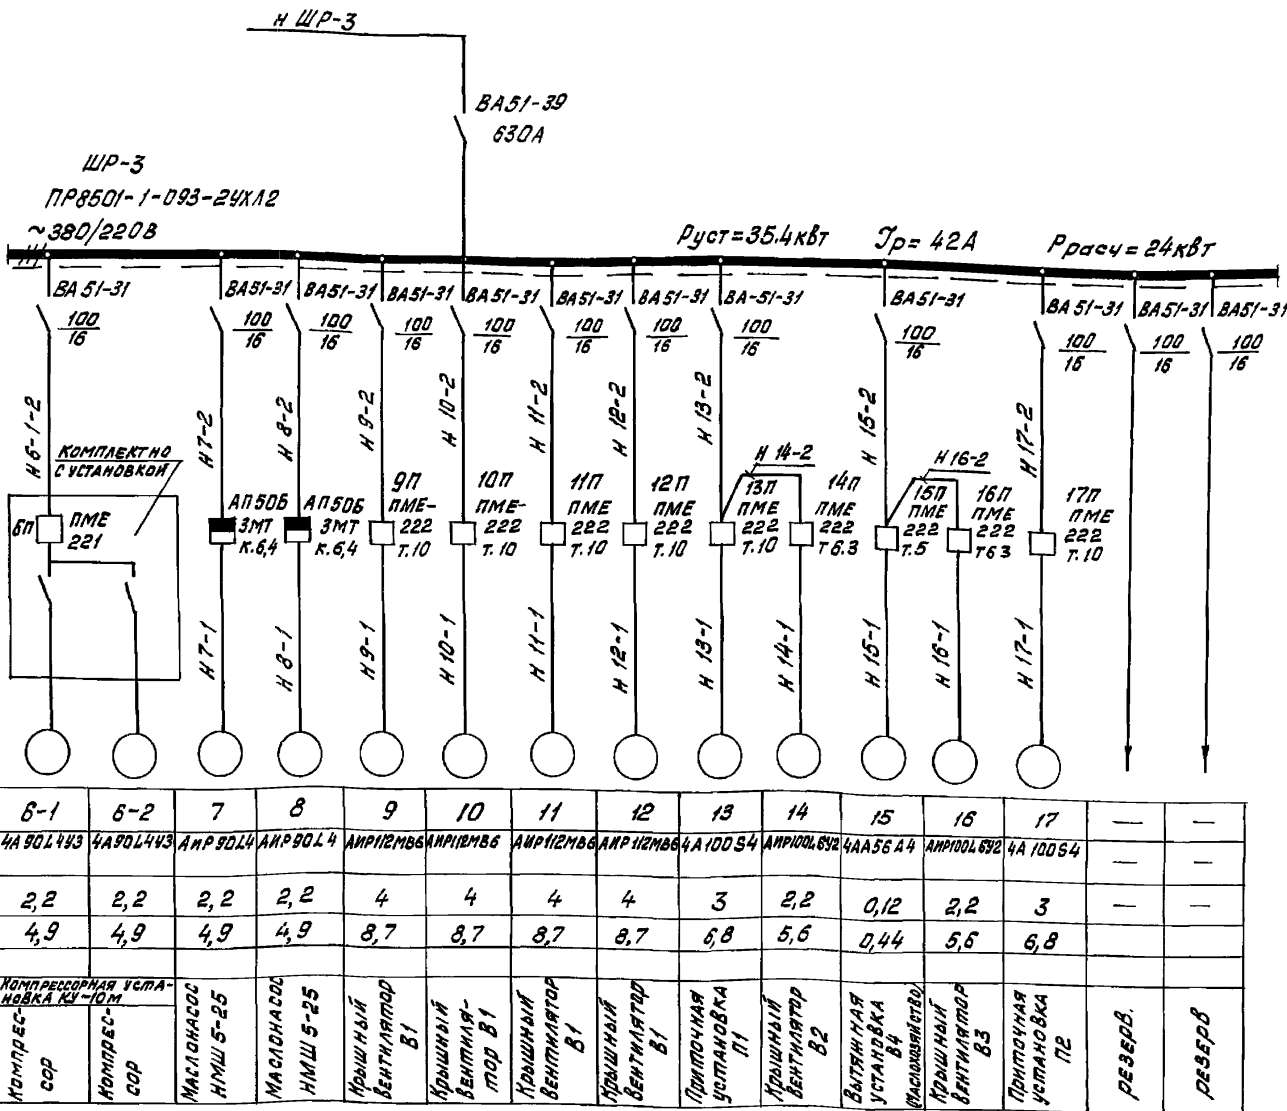 Н ШР-3
ВА51-39
630А
ШР-3
ПР8501-1-093-2УХЛ2
~380/220В
Руст=35.4кВт
Iр= 42А
Ррасч=24кВт
ВА51-31
100
16
ВА51-31
100
16
ВА51-31
100
16
ВА51-31
100
16
ВА51-31
100
16
ВА51-31
100
16
ВА51-31
100
16
ВА-51-31
100
16
ВА51-31
100
16
ВА51-31
100
16
ВА51-31
100
16
ВА51-31
100
16
Н6-1-2
Н7-2
Н8-2
Н9-2
Н10-2
Н11-2
Н12-2
Н13-2
Н14-2
Н15-2
Н16-2
Н17-2
КОМПЛЕКТНО
С УСТАНОВКОЙ
6П
ПМЕ
221
АП50Б
3МТ
к.6,4
АП50Б
3МТ
к.6,4
9П
ПМЕ-
222
т.10
10П
ПМЕ-
222
т.10
11П
ПМЕ
222
т.10
12П
ПМЕ
222
т.10
13П
ПМЕ
222
т.10
14П
ПМЕ
222
т6.3
15П
ПМЕ
222
т.5
16П
ПМЕ
222
т63
17П
ПМЕ
222
т.10
Н7-1
Н8-1
Н9-1
Н10-1
Н11-1
Н12-1
Н13-1
Н14-1
Н15-1
Н16-1
Н17-1
6-1 6-2 7 8 9 10 11 12 13 14 15 16 17 — —
4А90L4У3 4А90L4У3 АИР90L4 АИР90L4 АИР112МВ6 АИР112МВ6 АИР112МВ6 АИР112МВ6 4А100S4 АИР100L6У2 4АА56А4 АИР100L6У2 4А100S4 — —
2,2 2,2 2,2 2,2 4 4 4 4 3 2,2 0,12 2,2 3 — —
4,9 4,9 4,9 4,9 8,7 8,7 8,7 8,7 6,8 5,6 0,44 5,6 6,8
КОМПРЕССОРНАЯ УСТА-
НОВКА КУ-10М
Компрес-
сор
Компрес-
сор
Маслонасос
НМШ 5-25
Маслонасос
НМШ 5-25
Крышный
вентилятор
В1
Крышный
вентиля-
тор В1
Крышный
вентилятор
В1
Крышный
вентилятор
В1
Приточная
установка
П1
Крышный
вентилятор
В2
Вытяжная
установка
В4
(Маслохозяйство)
Крышный
вентилятор
В3
Приточная
установка
П2
резерв.
резерв